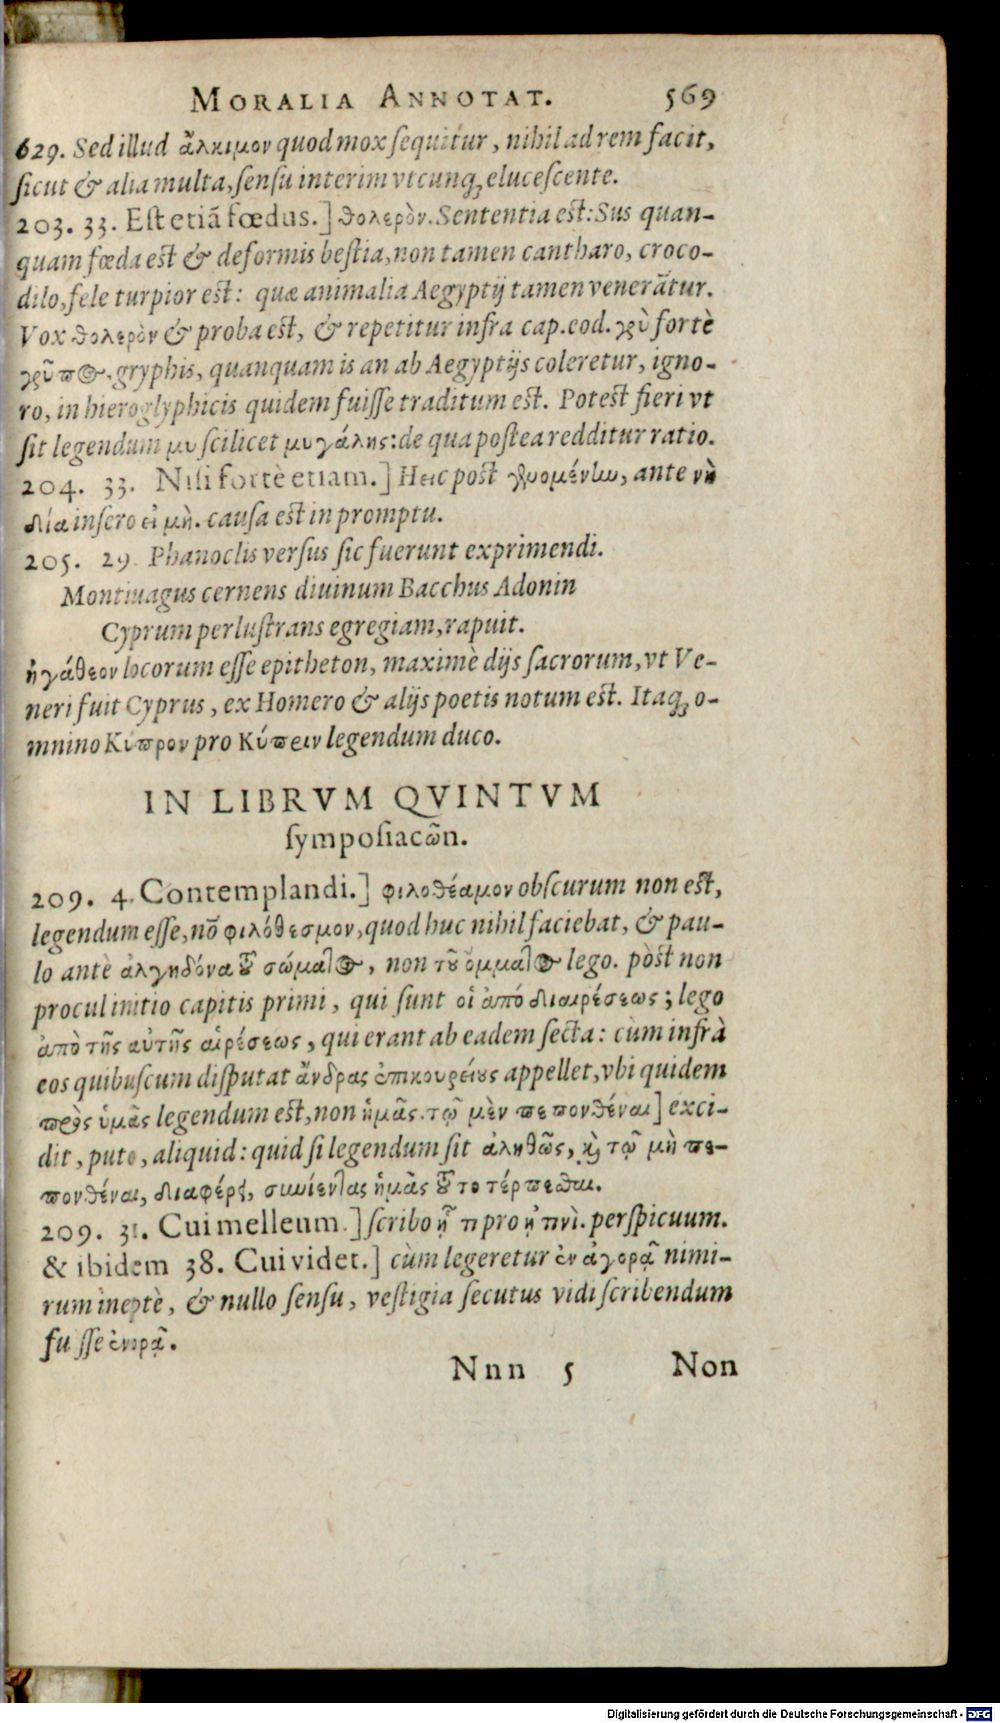 MORALIA ANNOTAT. 569
629. Sed illud ἄλκιμον quod mox sequitur, nihil ad rem facit,
sicut & alia multa, sensu interim vtcunq; elucescente.
203. 33. Est etiā fœdus.] θολερὸν. Sententia est: Sus quan-
quam fœda est & deformis bestia, non tamen cantharo, croco-
dilo, fele turpior est: quæ animalia Aegyptij tamen venerātur.
Vox θολερὸν & proba est, & repetitur infra cap. eod. γρὺ fortè
γρῦπος, gryphis, quanquam is an ab Aegyptijs coleretur, igno-
ro, in hieroglyphicis quidem fuisse traditum est. Potest fieri vt
sit legendum μυ scilicet μυγάλης: de qua postea redditur ratio.
204. 33. Nisi fortè etiam.] Heic post ante νὴ
δία insero εἰ μὴ. causa est in promptu.
205. 29. Phanoclis versus sic fuerunt exprimendi.
Montiuagus cernens diuinum Bacchus Adonin
Cyprum perlustrans egregiam, rapuit.
ἠγάθεον locorum esse epitheton, maximè dijs sacrorum, vt Ve-
neri fuit Cyprus, ex Homero & alijs poetis notum est. Itaq; o-
mnino Κύπρον pro Κύπριν legendum duco.
IN LIBRVM QVINTVM
symposiacῶν.
209. 4. Contemplandi.] φιλοθέαμον obscurum non est,
legendum esse, nō φιλόθεσμον, quod huc nihil faciebat, & pau-
lo antè ἀλγηδόνα τοῦ σώματος, non τοῦ ὄμματος lego. pòst non
procul initio capitis primi, qui sunt οἱ ἀπό διαιρέσεως; lego
ἀπὸ τῆς αὐτῆς αἱρέσεως, qui erant ab eadem secta: cùm infrà
eos quibuscum disputat ἄνδρας ἐπικουρείους appellet, vbi quidem
πρὸς ὑμᾶς legendum est, non ἡμᾶς. τῷ μὲν πεπονθέναι] exci-
dit, puto, aliquid: quid si legendum sit ἀληθῶς, καὶ τῷ μὴ πε-
πονθέναι, διαφέρει, συνιέντας ἡμᾶς τοῦ το τέρπεσθαι.
209. 31. Cui melleum.] scribo ᾗ τι pro ᾗ τινὶ. perspicuum.
& ibidem 38. Cui videt.] cùm legeretur ἐν ἀγορᾷ nimi-
rum ineptè, & nullo sensu, vestigia secutus vidi scribendum
fuisse ἐνορᾷ.
Nnn 5 Non
Digitalisierung gefördert durch die Deutsche Forschungsgemeinschaft - DFG